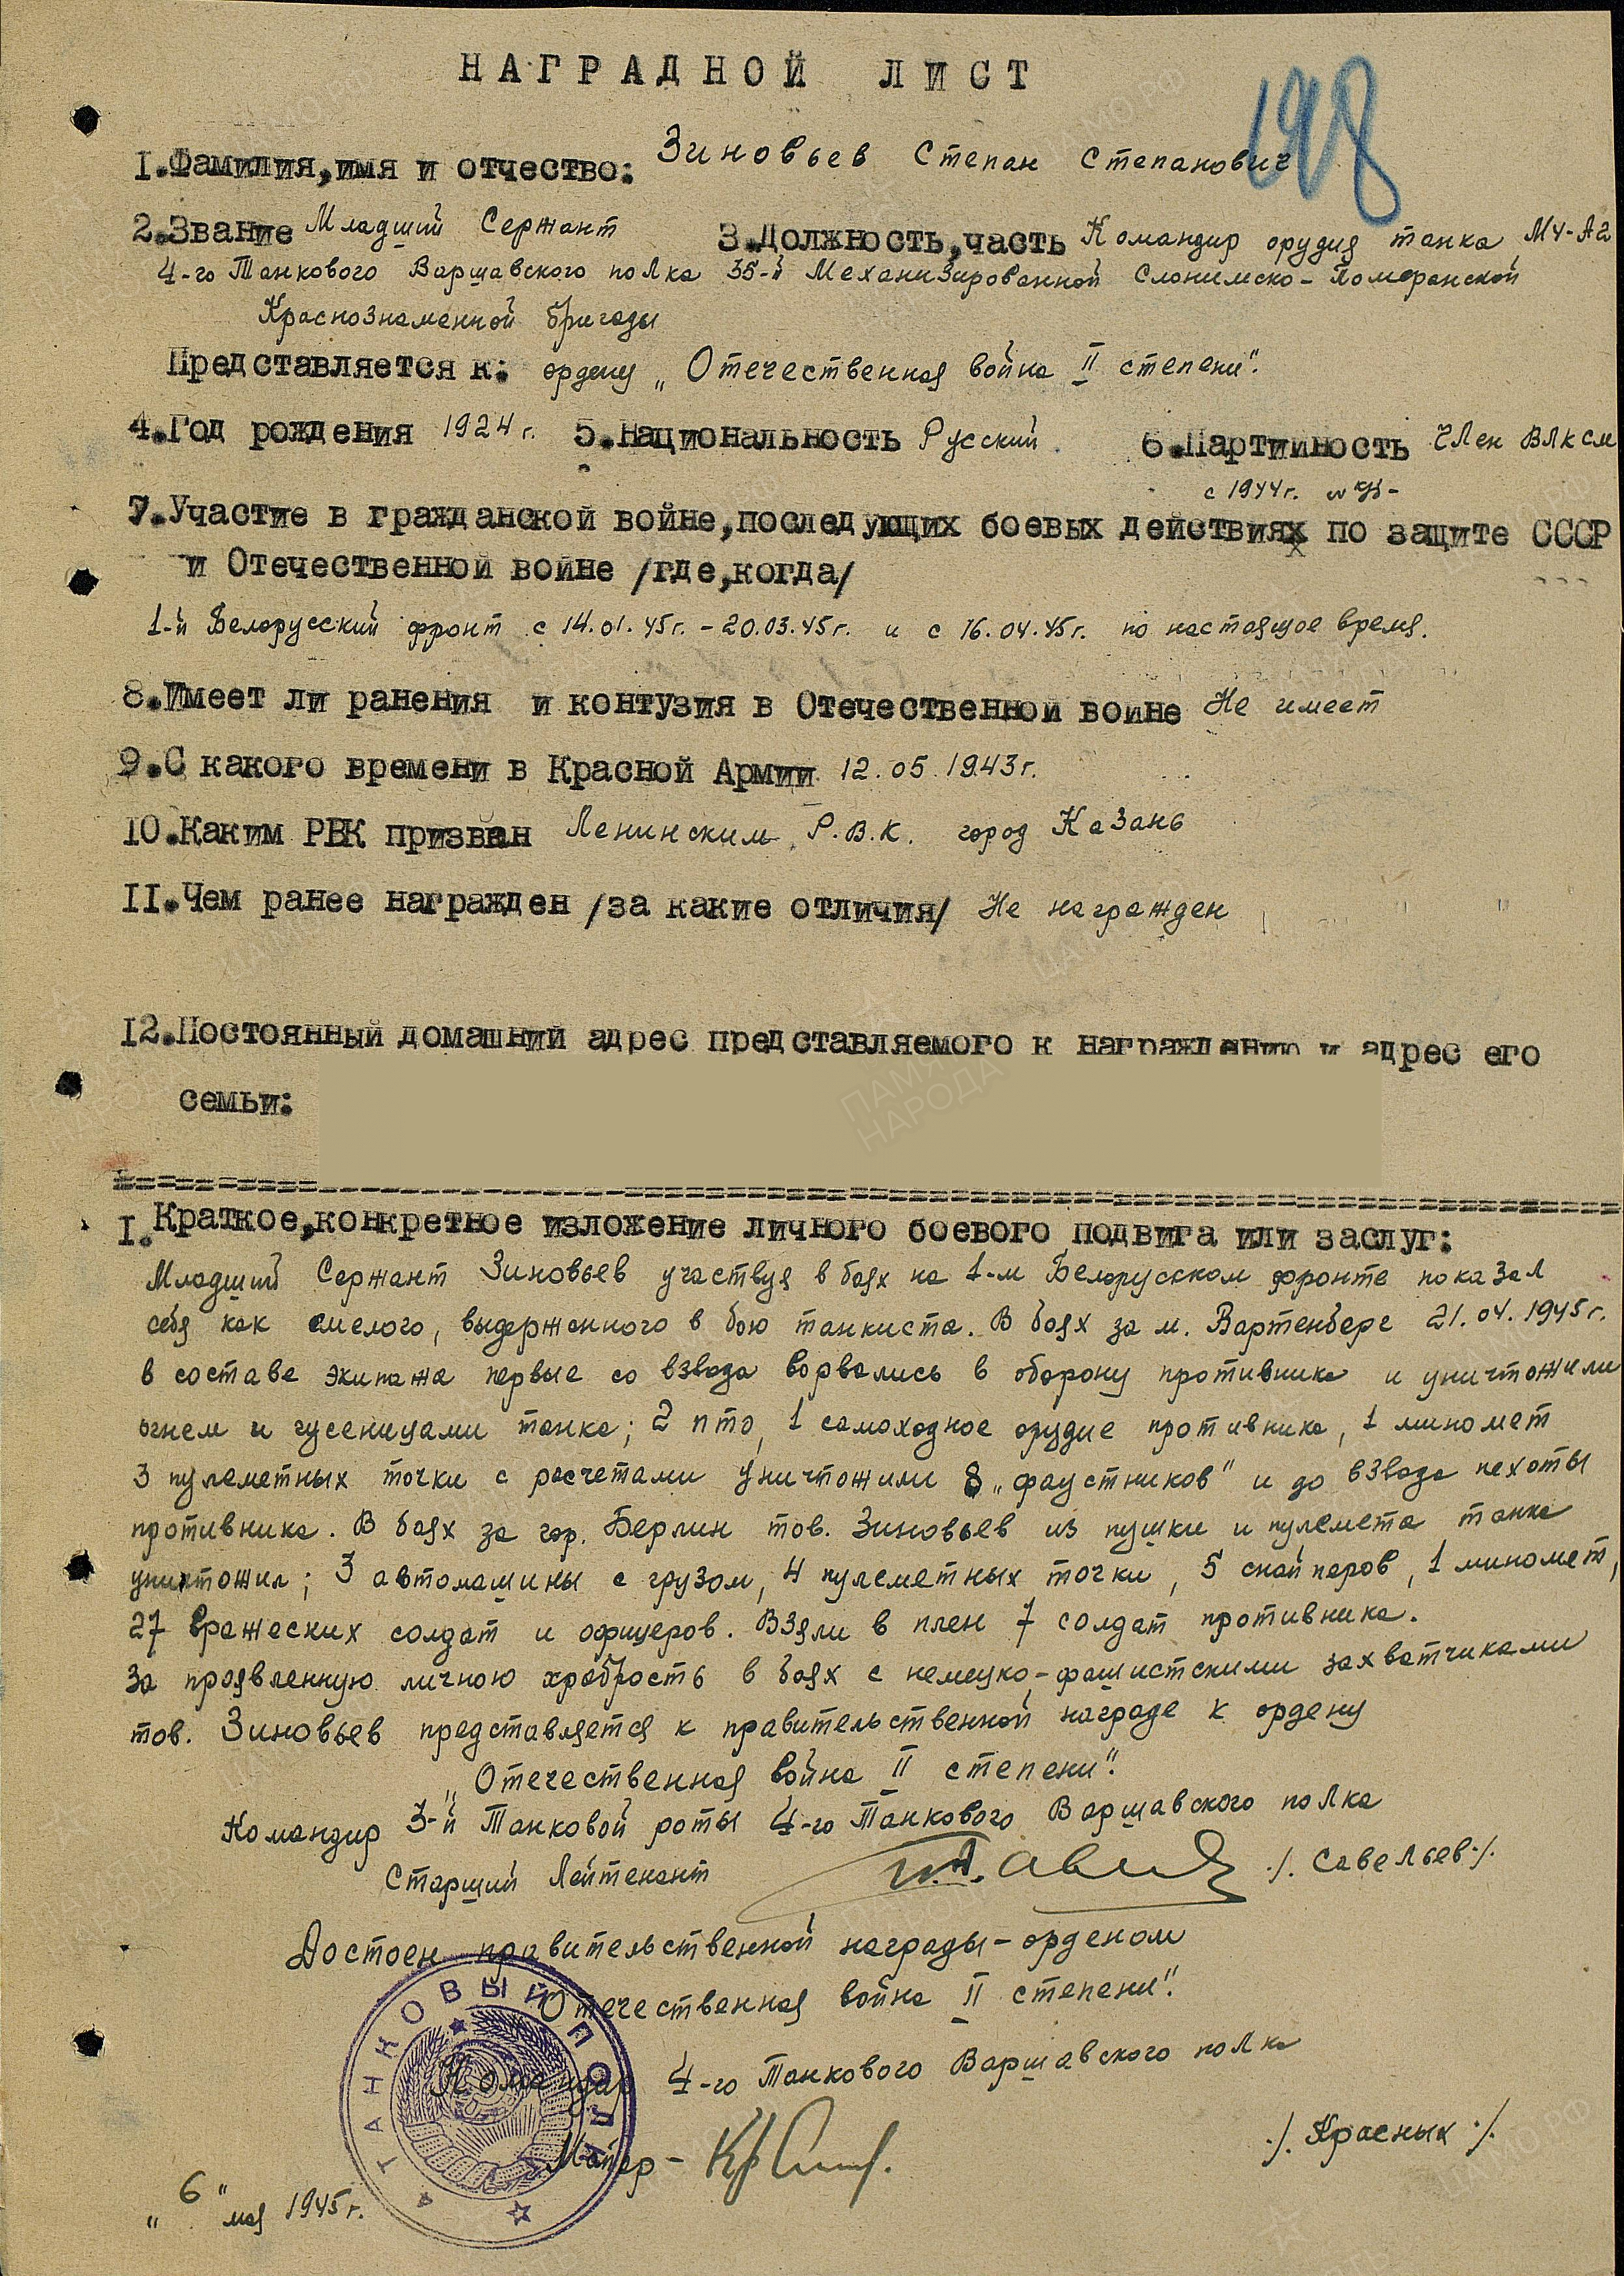 НАГРАДНОЙ ЛИСТ
198
I.Фамилия,имя и отчество: Зиновьев Степан Степанович
2.Звание Младший Сержант 3.Должность,часть Командир орудия танка МЧ-А2
4-го Танкового Варшавского полка 35-й Механизированной Слонимско-Померанской
Краснознаменной бригады
Представляется к: ордену „Отечественная война II степени".
4.Год рождения 1924 г. 5.Национальность Русский 6.Партийность Член ВЛКСМ
с 1944 г.
7.Участие в гражданской войне,последующих боевых действиях по защите СССР
и Отечественной войне /где,когда/
1-й Белорусский фронт с 14.01.45г. - 20.03.45г. и с 16.04.45г. по настоящее время.
8.Имеет ли ранения и контузия в Отечественной войне Не имеет
9.С какого времени в Красной Армии 12.05.1943г.
10.Каким РВК призван Ленинским Р.В.К. город Казань
II.Чем ранее награжден /за какие отличия/ Не награжден
I2.Постоянный домашний адрес представляемого к награждению и адрес его
семьи:
I. Краткое,конкретное изложение личного боевого подвига или заслуг:
Младший Сержант Зиновьев участвуя в боях на 1-м Белорусском фронте показал
себя как смелого, выдержанного в бою танкиста. В боях за м. Вартенберг 21.04.1945г.
в составе экипажа первые со взвода ворвались в оборону противника и уничтожили
огнем и гусеницами танка; 2 ПТО, 1 самоходное орудие противника, 1 миномет
3 пулеметных точки с расчетами уничтожили 8 „фаустников" и до взвода пехоты
противника. В боях за гор. Берлин тов. Зиновьев из пушки и пулемета танка
уничтожил; 3 автомашины с грузом, 4 пулеметных точки, 5 снайперов, 1 миномет,
27 вражеских солдат и офицеров. Взяли в плен 7 солдат противника.
За проявленную личною храбрость в боях с немецко-фашистскими захватчиками
тов. Зиновьев представляется к правительственной награде к ордену
„Отечественная война II степени".
Командир 3-й Танковой роты 4-го Танкового Варшавского полка
Старший Лейтенант ./. Савельев ./.
Достоен правительственной награды - орденом
Отечественная война II степени".
Командир 4-го Танкового Варшавского полка
Майор - ./. Красных ./.
„6" мая 1945 г.
4 ТАНКОВЫЙ ПОЛК
ПАМЯТЬ НАРОДА
ЦАМО.РФ